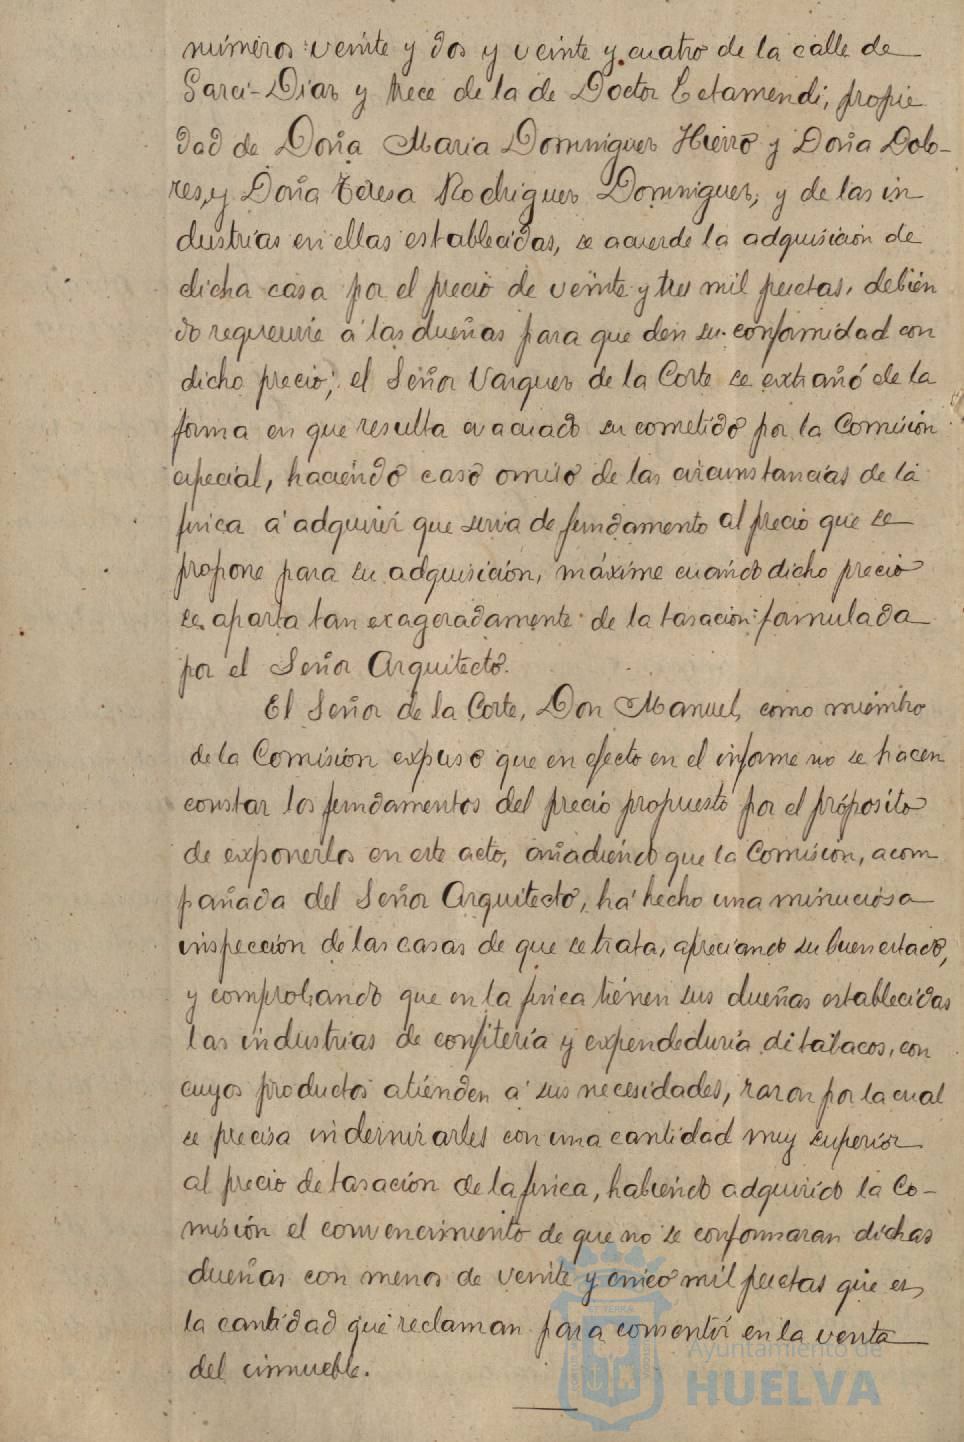 números veinte y dos y veinte y cuatro de la calle de
Garci-Diaz y trece de la de Doctor Letamendi, propie
dad de Doña Maria Dominguez Hierro y Doña Dolo-
res, y Doña Teresa Rodriguez Dominguez, y de las in
dustrias en ellas establecidas, se acuerde la adquisición de
dicha casa por el precio de veinte y tres mil pesetas, debien
do requerirse á las dueñas para que den su conformidad con
dicho precio; el Señor Vazquez de la Corte se extrañó de la
forma en que resulta evacuado su cometido por la Comisión
especial, haciendo caso omiso de las circunstancias de la
finca á adquirir que sirva de fundamento al precio que se
propone para su adquisición, máxime cuando dicho precio
se aparta tan exageradamente de la tasación formulada
por el Señor Arquitecto.
El Señor de la Corte, Don Manuel, como miembro
de la Comisión expuso que en efecto en el informe no se hacen
constar los fundamentos del precio propuesto por el própósito
de exponerlos en este acto, añadiendo que la Comisión, acom
pañada del Señor Arquitecto, há hecho una minuciosa
inspección de las casas de que se trata, apreciando su buen estado,
y comprobando que en la finca tienen sus dueñas establecidas
las industrias de confitería y expendeduría de tabacos, con
cuyos productos atienden á sus necesidades, razon por la cual
se precisa indemnizarles con una cantidad muy superior
al precio de tasación de la finca, habiendo adquirido la Co-
misión el convencimiento de que no se conformaran dichas
dueñas con menos de veinte y cinco mil pesetas que es,
la cantidad que reclaman para consentir en la venta
del inmueble.
Ayuntamiento de
HUELVA